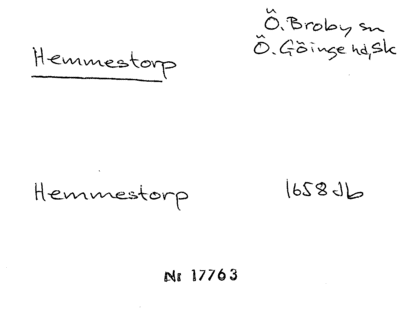 Ö. Broby sn
Hemmestorp Ö. Göinge hd, Sk
Hemmestorp 1658 Jb
Nr 17763